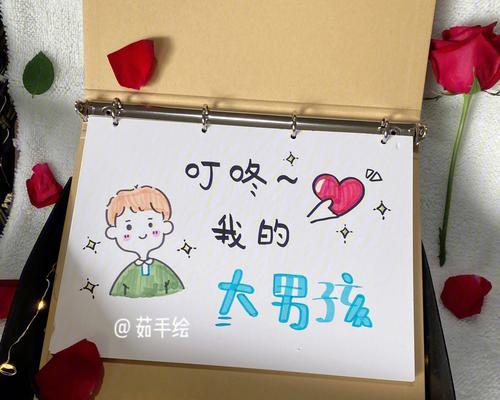 叮咚~
我的
大男孩
@茹手绘